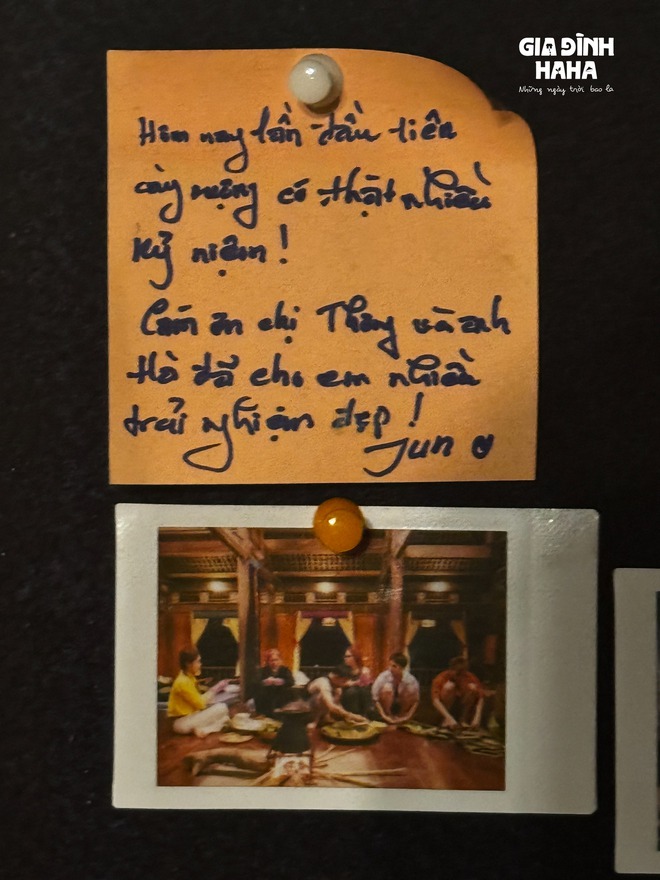 GIA ĐÌNH
HAHA
Những ngày trời bao la
Hôm nay lần đầu tiên
cày ruộng có thật nhiều
kỷ niệm!
Cám ơn chị Thông và anh
Hò đã cho em nhiều
trải nghiệm đẹp!
Jun